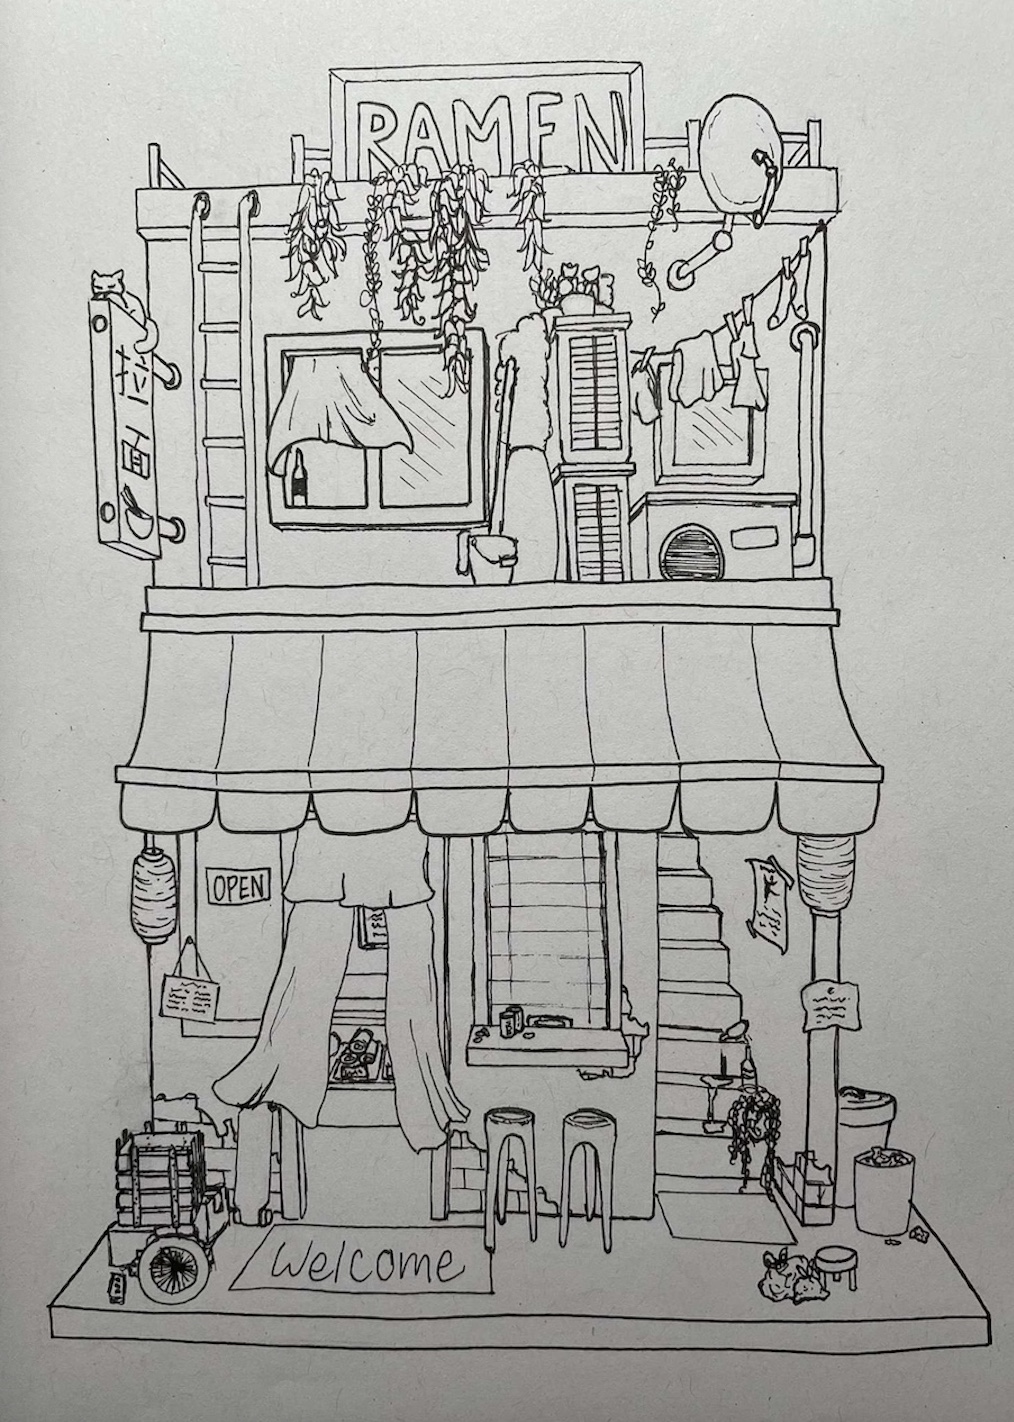 RAMEN
拉面
OPEN
Welcome